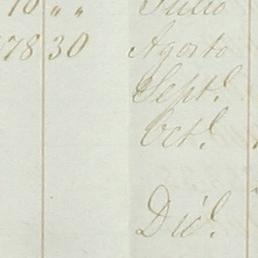 10 " " Julio
78 30 Agosto
Sept.
Oct.
Dic.